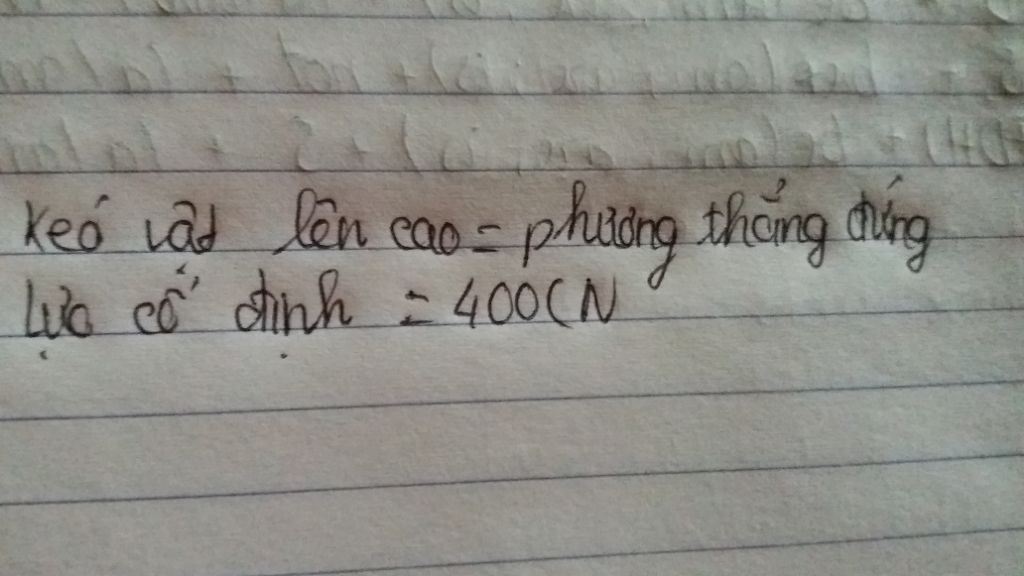 Keó vâd lên cao = phương thẳng đứng
lực cố định = 400(N